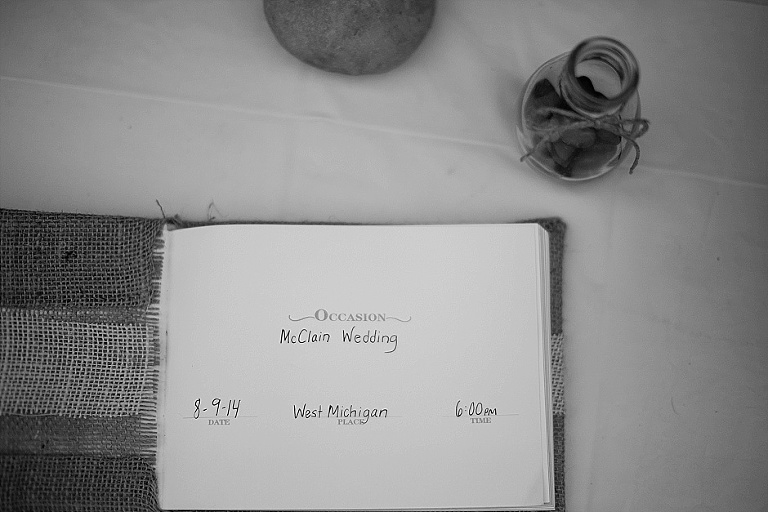 OCCASION
McClain Wedding
8-9-14 West Michigan 6:00pm
DATE PLACE TIME